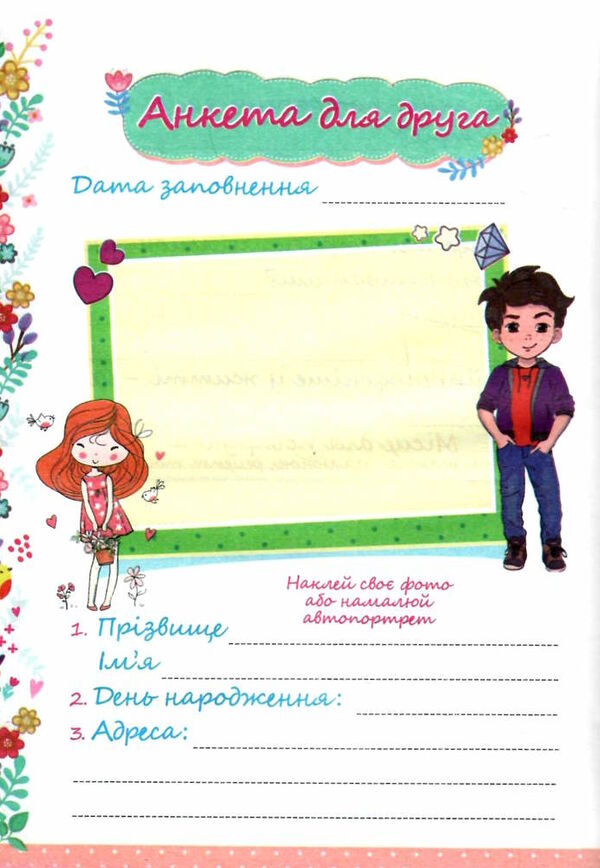 Анкета для друга
Дата заповнення
Наклей своє фото
або намалюй
автопортрет
1. Прізвище
Ім'я
2. День народження:
3. Адреса: